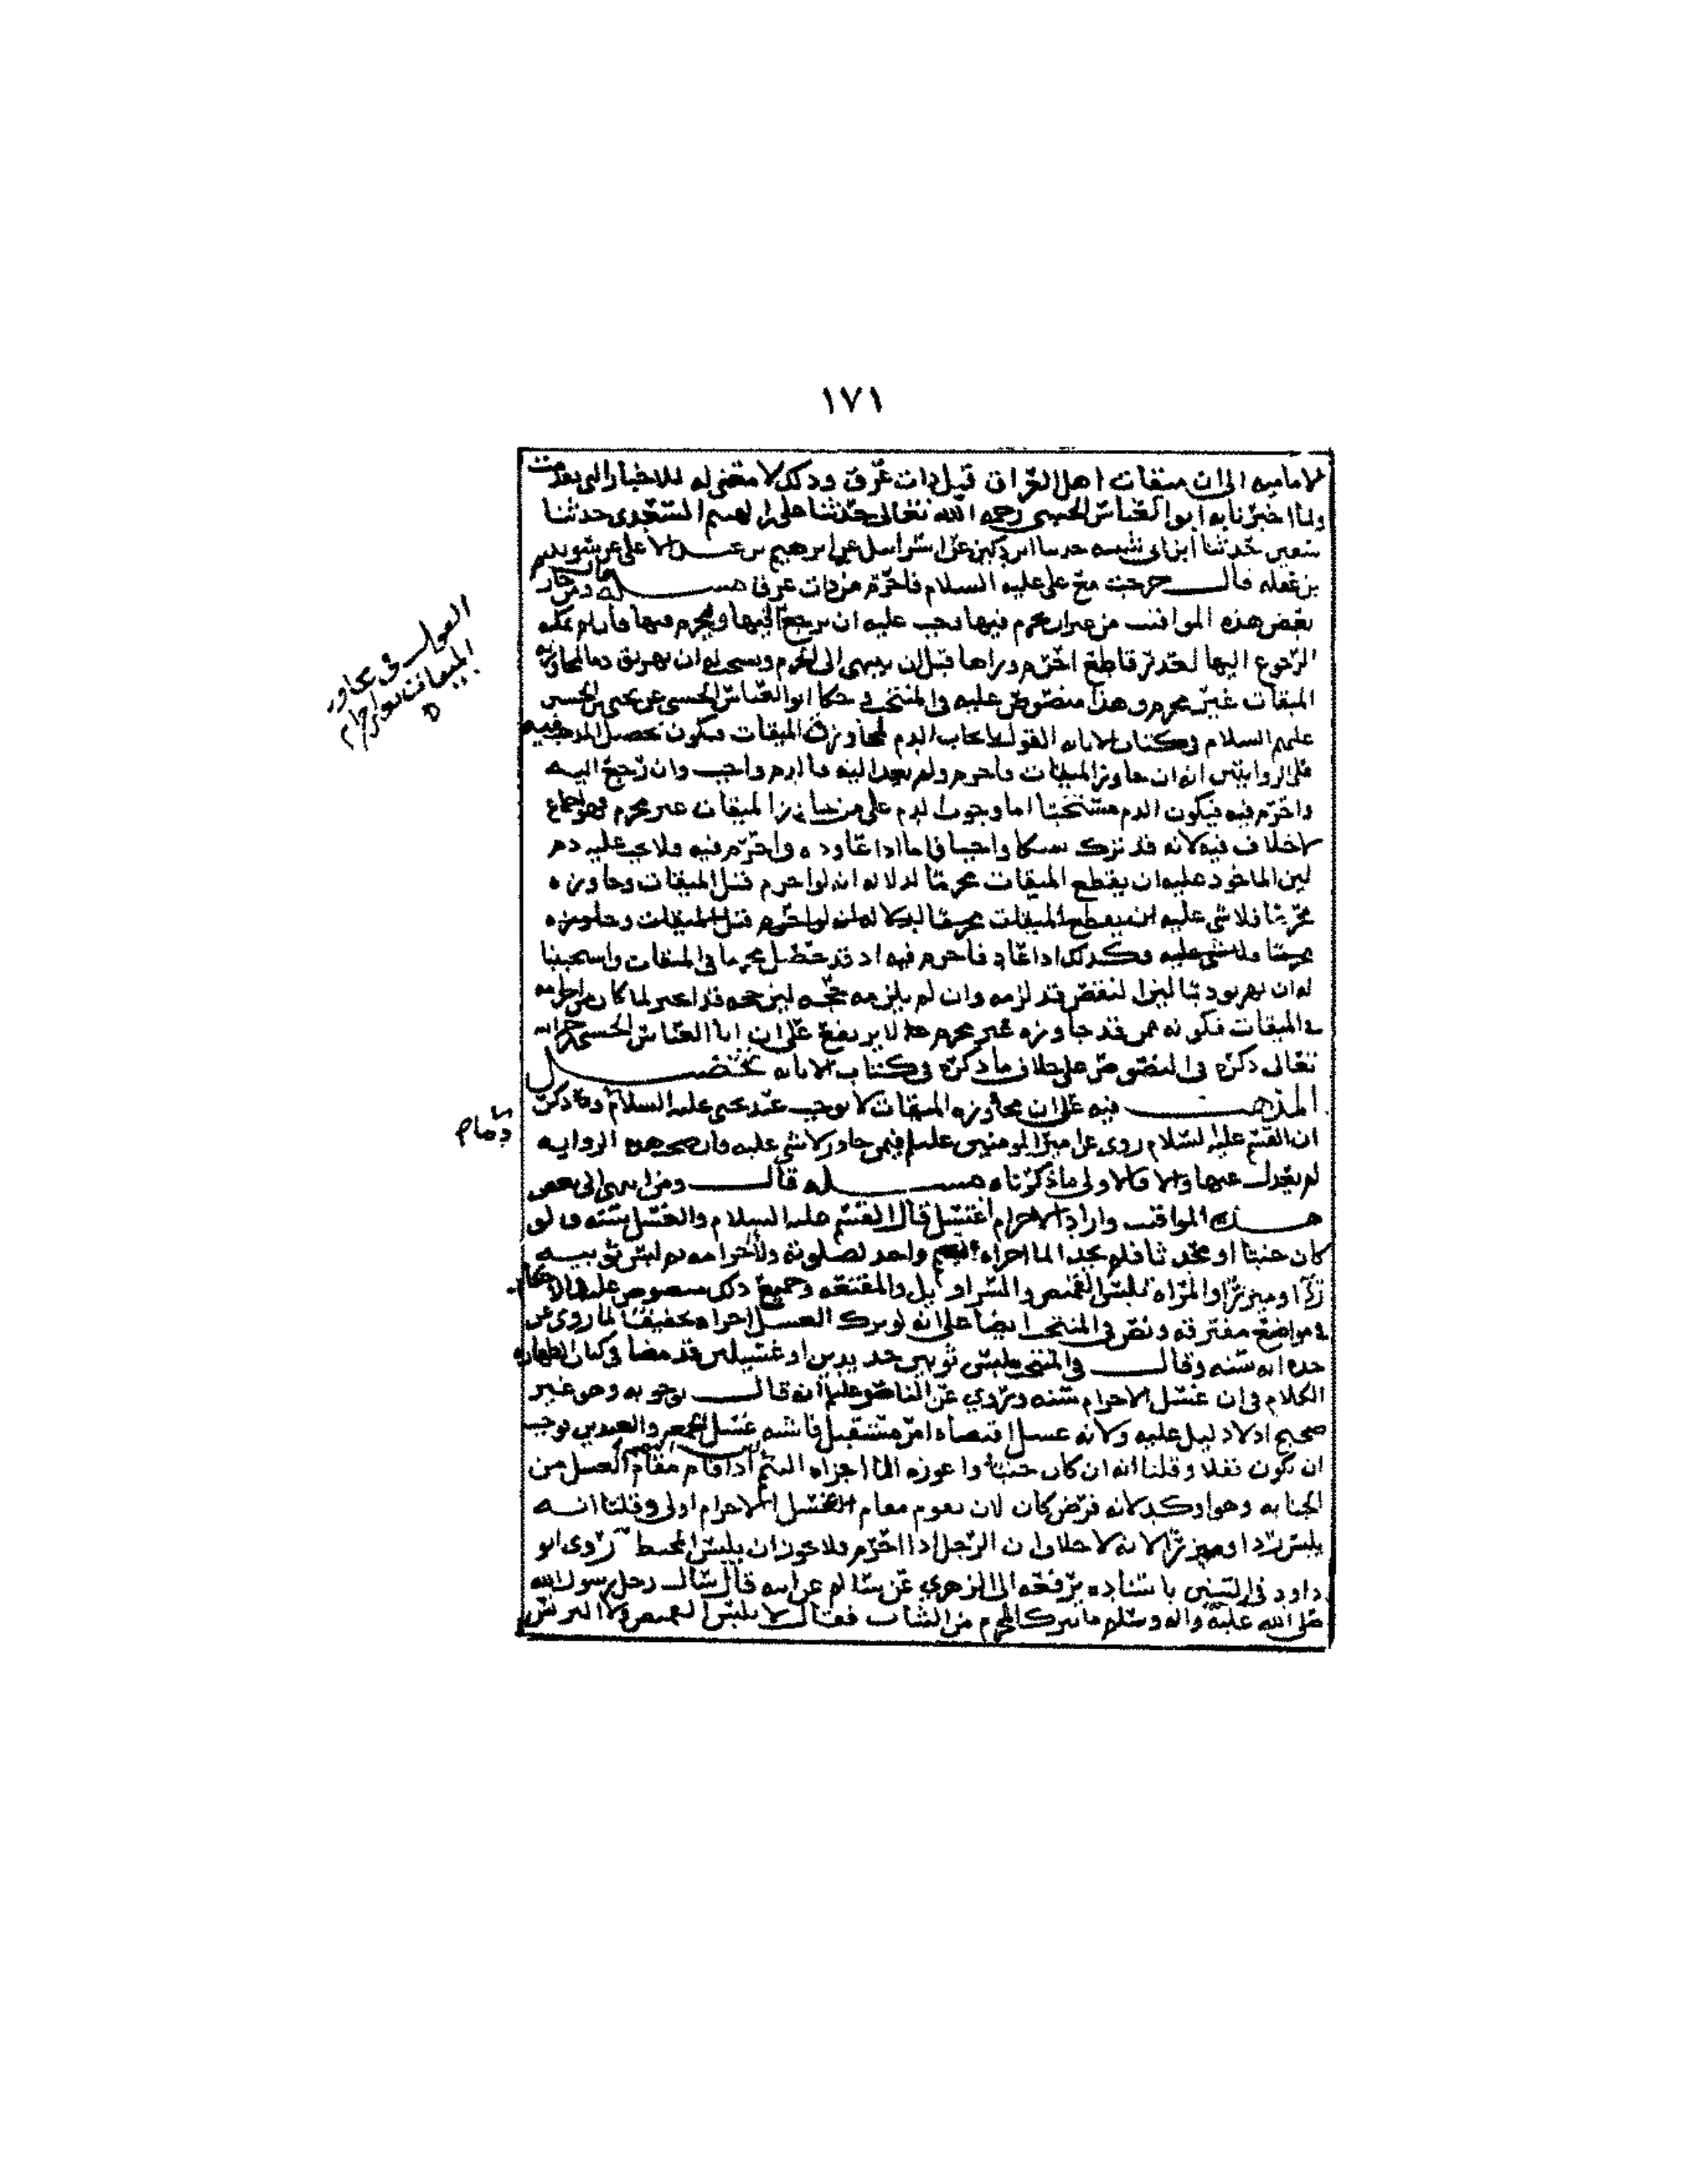 ١٧١
الامامية الى ان ميقات اهل العراق قبل ذات عرق وذلك لا معنى له للاخبار التي تقدمت
ولما اخبرنا به ابو العباس الحسني رحمه الله تعالى حدثنا علي بن الهيثم السعدي حدثنا
حدثنا ابن ابي شيبه حدثنا ابن دكين عن اسرائيل عن ابرهيم بن عبد الاعلى عن سويد
بن غفله قال خرجت مع علي عليه السلام فاحرم من ذات عرق مسئله قال ومن جاز
بعض هذه المواقيت من غير ان يحرم فيها وجب عليه ان يرجع اليها ويحرم فيها فان لم يمكنه
الرجوع اليها لعذر قاطع احرم وراها قبل ان ينتهي الى الحرم ويستحب له ان يهريق دما لمجاوزته
الميقات غير محرم وهذا منصوص عليه في المنتخب حكا ابو العباس الحسني عن يحيى بن الحسين
عليهم السلام وكتاب الابانه القول بايجاب الدم لمجاوزة الميقات فيكون تحصيل المذهب فيه
على الروايتين انه ان جاوز الميقات فاحرم ولم يعد اليه فالدم واجب وان رجع اليه
واحرم فيه فيكون الدم مستحبا اما وجوب الدم على من جاوز الميقات غير محرم فهو اجماع
لا خلاف فيه لانه قد ترك نسكا واجبا فاما اذا عاوده واحرم فيه فلا يجب عليه دم
لين الماخوذ عليه ان يقطع الميقات محرما لدلالة انه لو احرم قبل الميقات وجاوزه
محرما فلا شي عليه ان يقطع الميقات محرما لدلالة انه لو احرم قبل الميقات وجاوزه
محرما فلا شي عليه وكذلك اذا عاد فاحرم فيه اذ قد حصل محرما في الميقات واستحببنا
له ان يهريق دما لينزل لنقص قد لزمه وان لم يلزمه حجه لين حجه قد اجبر لما كان من احرامه
في الميقات فكونه ممن قد جاوزه غير محرم مما لا يرتفع على ان ابا العباس الحسني رحمه الله
تعالى ذكره في النصوص على خلاف ما ذكره في كتاب الابانه تحصيل
المذهب فيه على ان مجاوزة الميقات لا يوجب عند يحيى عليه السلام دما وذكر
ان القسم عليه السلام روى عن امير المومنين عليلم فيمن جاوز لا شي عليه فان صحت هذه الروايه
لم يعدل عنها والا فالاولى ما ذكرناه مسئله قال ومن انتهى الى بعض
هذه المواقيت واراد الاحرام اغتسل قال القسم عليه السلام والغسل سنه ولو
كان جنبا او محدثا فلم يجد الما اجزاه تيمم واحد لصلوته ولاحرامه ثم لبس ثوبيه
رداً وميزراً والمراه تلبس القميص والسراويل والمقنعه وجميع ذلك منصوص عليه في الاحكام
في مواضع مفترقه ونص في المنتخب ايضا على انه لو ترك الغسل اجزاه تحقيقا لما روي عن
جده انه سنه وقال في المنتخب يلبس ثوبين جديدين او غسيلين قد مضا في كتاب الطهاره
الكلام في ان غسل الاحرام سنه وروي عن الناصر عليلم انه قال بوجوبه وهو غير
صحيح اذ لا دليل عليه ولانه غسل اقتضاه امر مستقبل فاشبه غسل الجمعه والعيدين فوجب
ان يكون نفلا وقلنا انه ان كان جنبا واعوزه الما اجزاه التيمم اذا قام مقام الغسل من
الجنابه وهو اوكد لانه فرض كان لان يقوم مقام الغسل للاحرام اولى وقلنا انه
يلبس ردا وميزرا لانه لا خلاف ان الرجل اذا احرم فلا يجوز ان يلبس المخيط روى ابو
داود في السنن باسناده يرفعه الى الزهري عن سالم عن ابيه قال سال رجل رسول الله
صلى الله عليه واله وسلم ما يترك المحرم من الثياب فقال لا يلبس القميص ولا البرنس
القول في مجاوز
الميقات بغير احرام
دما م